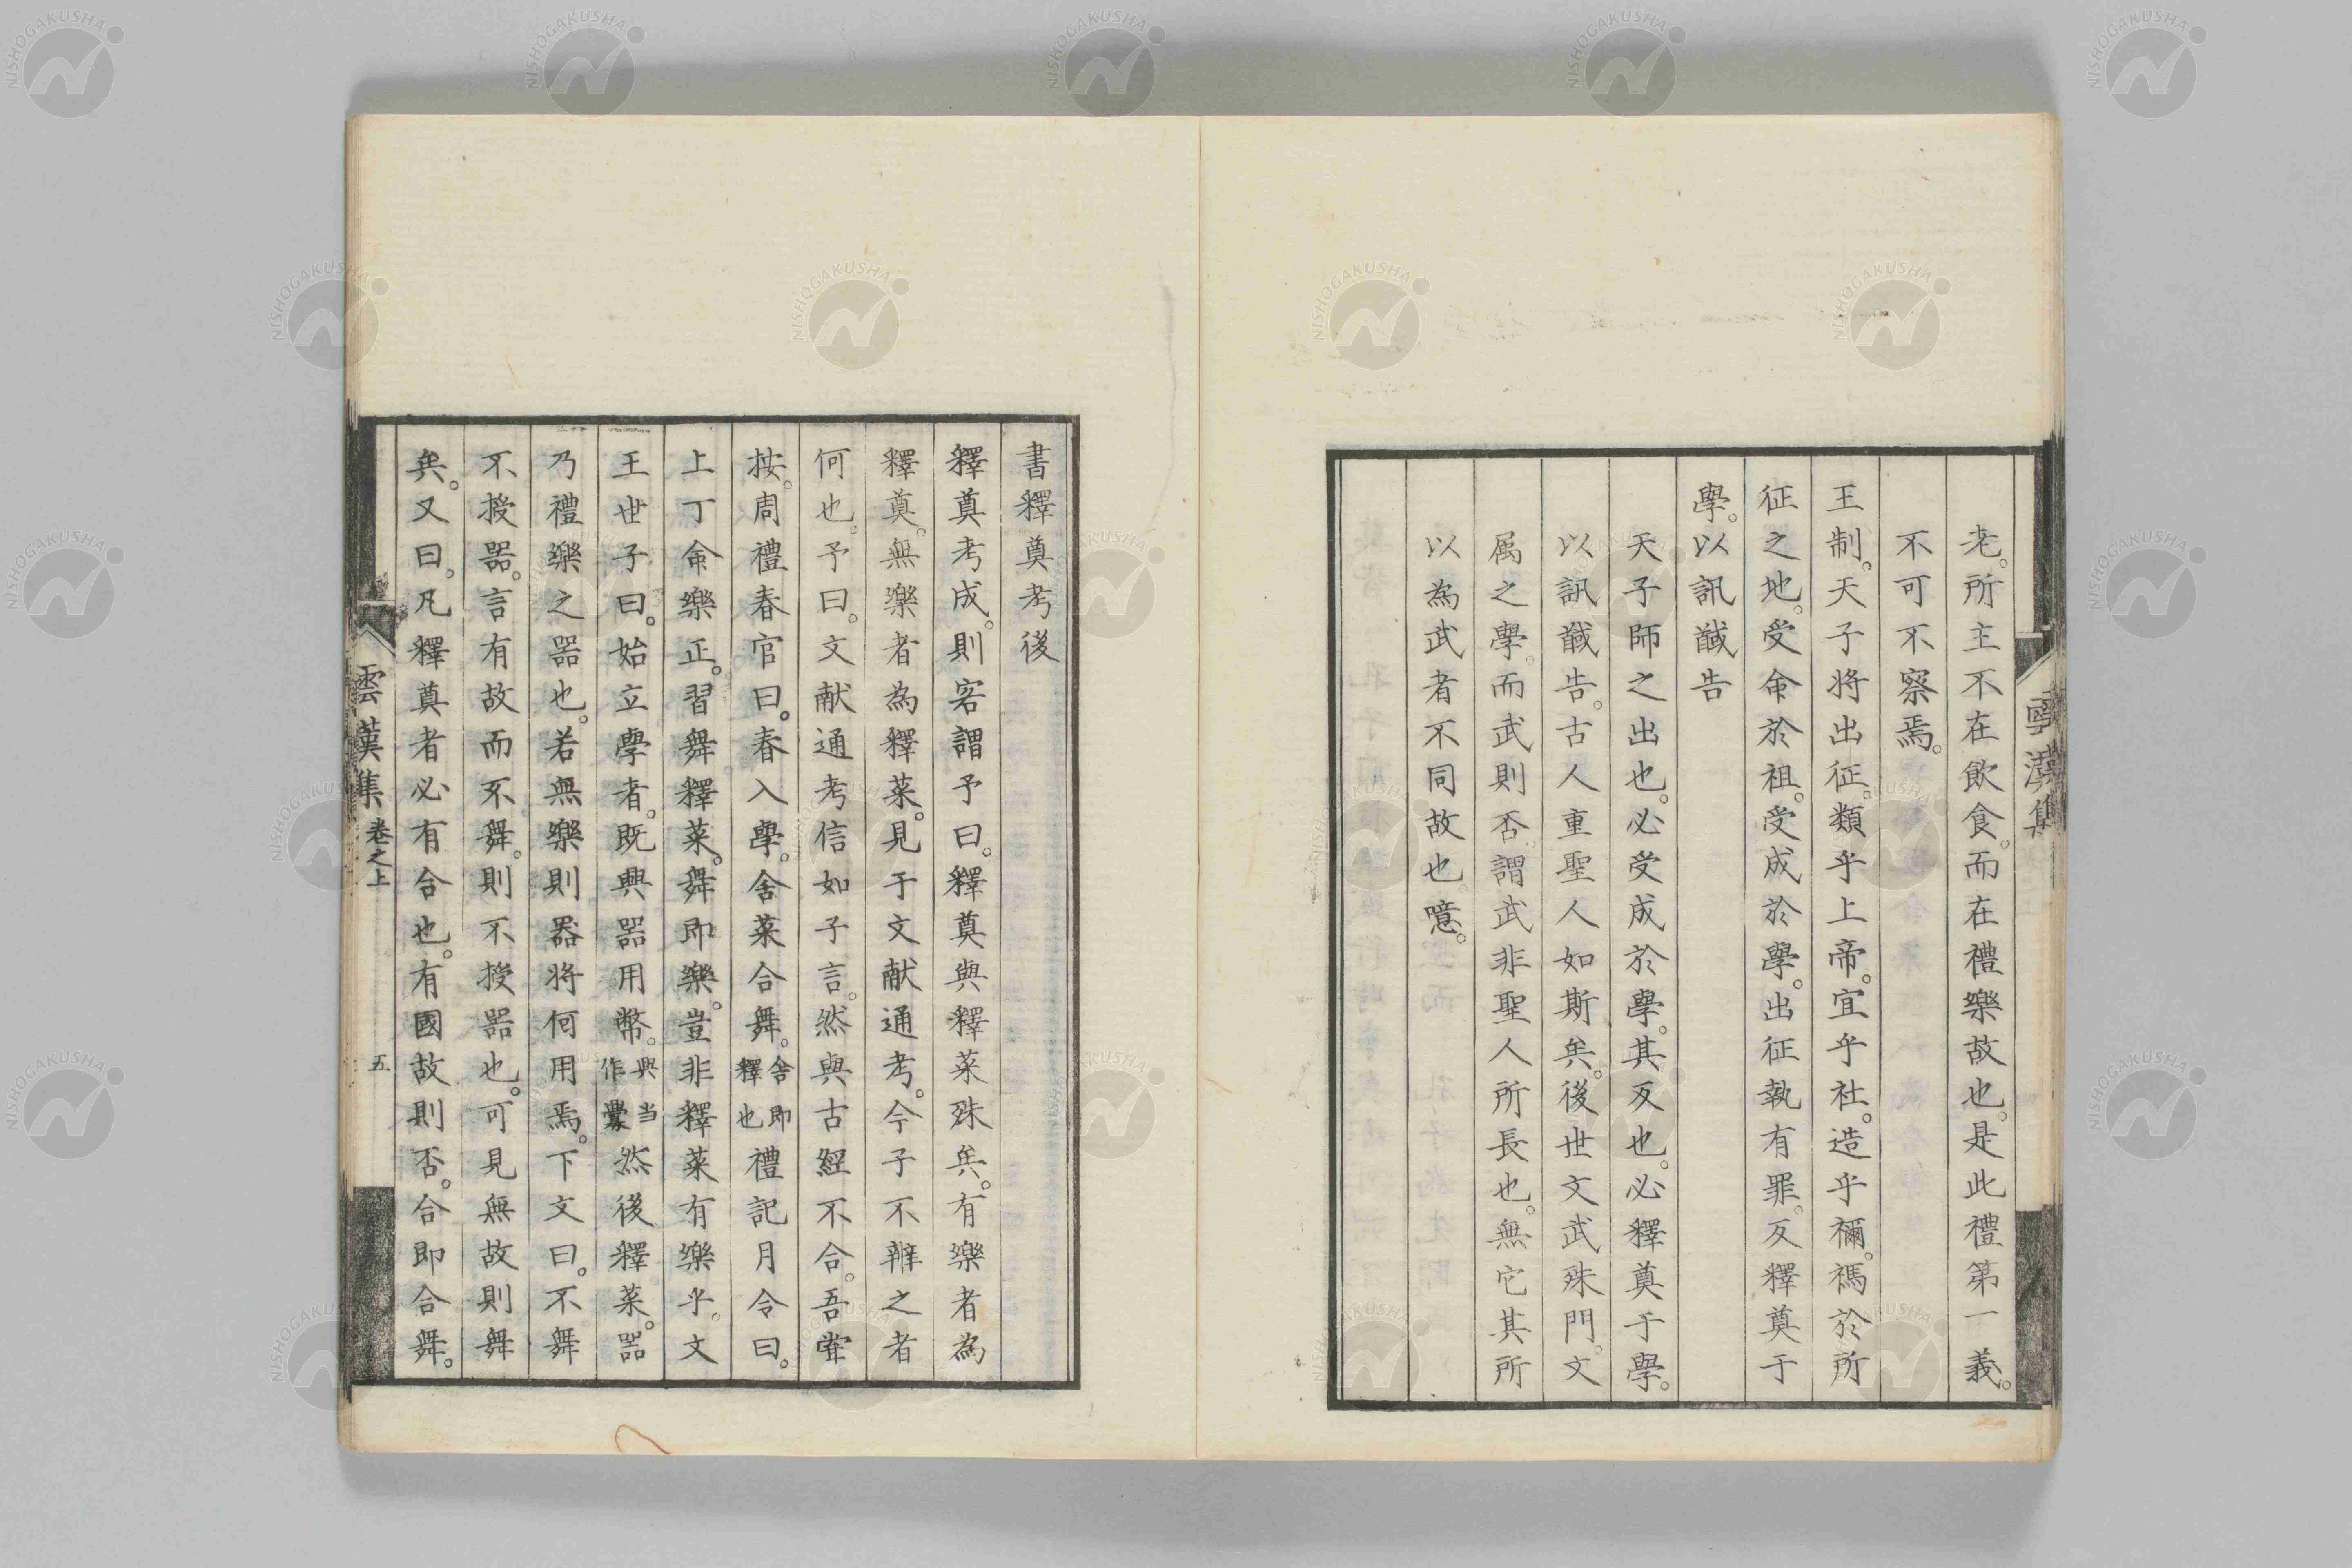 老。所主不在飲食。而在禮樂故也。是此禮第一義。
不可不察焉。
王制。天子将出征。類乎上帝。宜乎社。造乎禰。禡於所
征之地。受命於祖。受成於學。出征執有罪。反釋奠于
學。以訊馘告
天子師之出也。必受成於學。其反也。必釋奠于學。
以訊馘告。古人重聖人如斯矣。後世文武殊門。文
属之學。而武則否。謂武非聖人所長也。無它其所
以為武者不同故也。噫。
書釋奠考後
釋奠考成。則客謂予曰。釋奠與釋菜殊矣。有樂者為
釋奠。無樂者為釋菜。見于文献通考。今子不辨之者
何也。予曰。文献通考信如子言。然與古經不合。吾嘗
按。周禮春官曰。春入學。舍菜合舞。舍即釋也禮記月令曰。
上丁命樂正。習舞釋菜。舞即樂。豈非釋菜有樂乎。文
王世子曰。始立學者。既興器用幣。興当作釁然後釋菜。器
乃禮樂之器也。若無樂則器将何用焉。下文曰。不舞
不授器。言有故而不舞。則不授器也。可見無故則舞
矣。又曰。凡釋奠者必有合也。有國故則否。合即合舞。
雲漢集 卷之上 五
雲漢集
NISHOGAKUSHA